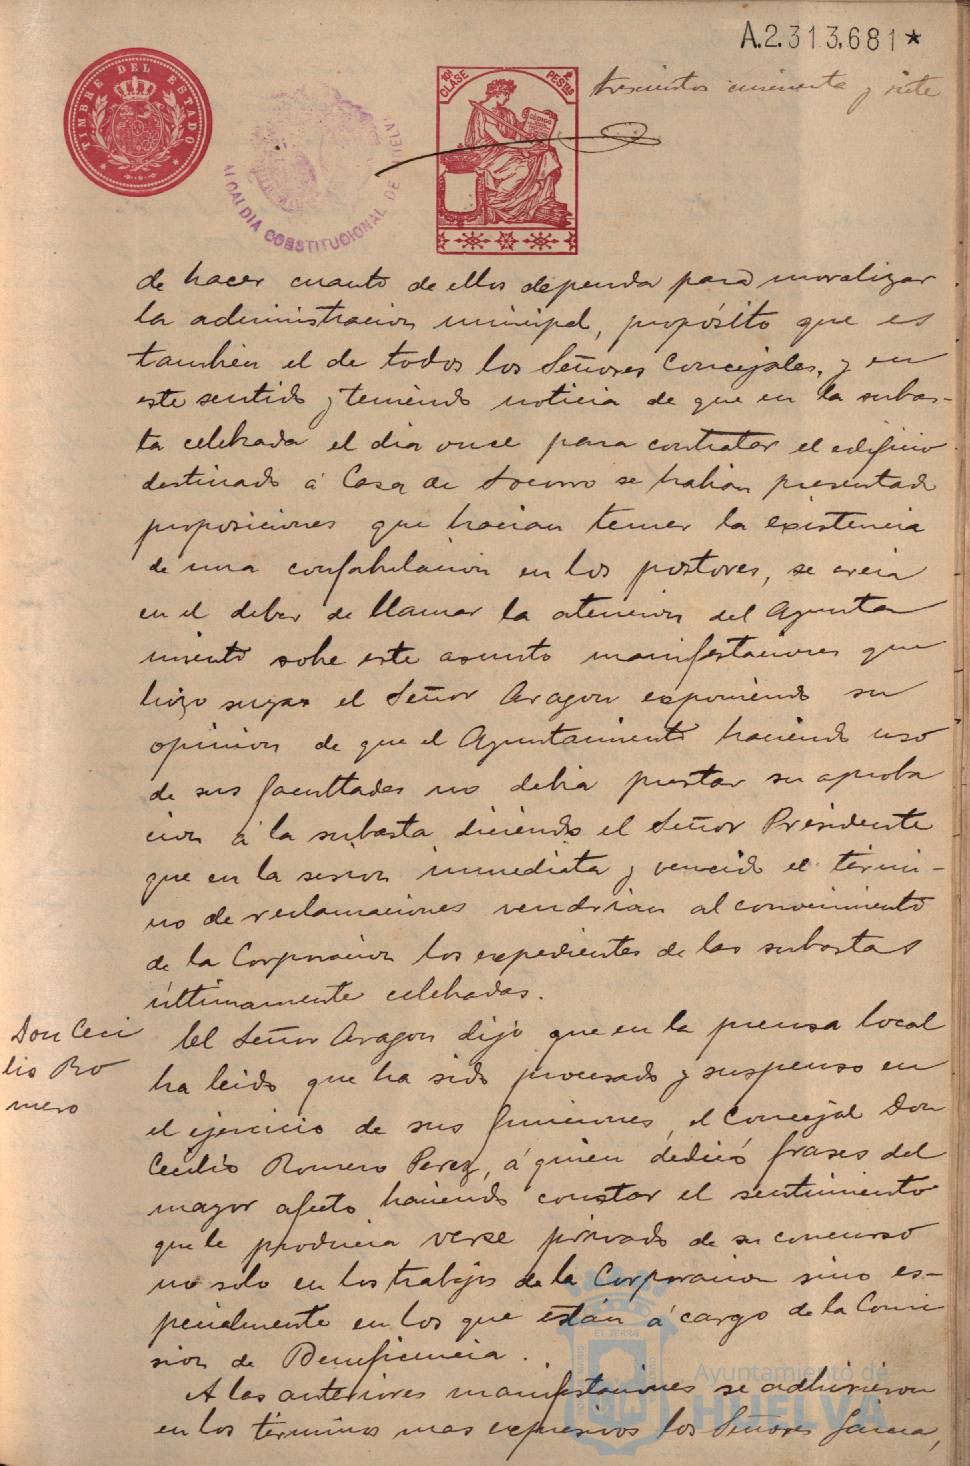 A.2.313,681★
trescientos cincuenta y siete
TIMBRE DEL ESTADO
ALCALDIA CONSTITUCIONAL DE HUELVA
10ª CLASE
PESETAS
de hacer cuanto de ellos dependa para moralizar
la administracion municipal, propósito que es
tambien el de todos los Señores Concejales, y en
este sentido y teniendo noticia de que en la subas-
ta celebrada el dia once para contratar el edificio
destinado á Casa de Socorro se habian presentado
proposiciones que hacian temer la existencia
de una confabulacion en los postores, se creia
en el deber de llamar la atencion del Ayunta
miento sobre este asunto manifestaciones que
hizo suyas el Señor Aragon exponiendo su
opinion de que el Ayuntamiento haciendo uso
de sus facultades no debia prestar su aproba
cion á la subasta diciendo el Señor Presidente
que en la sesion inmediata y vencido el térmi-
no de reclamaciones vendrian al conocimiento
de la Corporacion los expedientes de las subastas
últimamente celebradas.
Don Ceci
lio Ro
mero
El Señor Aragon dijo que en la prensa local
ha leido que ha sido procesado y suspenso en
el ejercicio de sus funciones, el Concejal Don
Cecilio Romero Perez, á quien dedicó frases del
mayor afecto haciendo constar el sentimiento
que le producia verse privado de su concurso
no solo en los trabajos de la Corporacion sino es-
pecialmente en los que están á cargo de la Comi
sion de Beneficencia.
A las anteriores manifestaciones se adhirieron
en los términos mas expresivos los Señores Garcia,
Ayuntamiento de
HUELVA